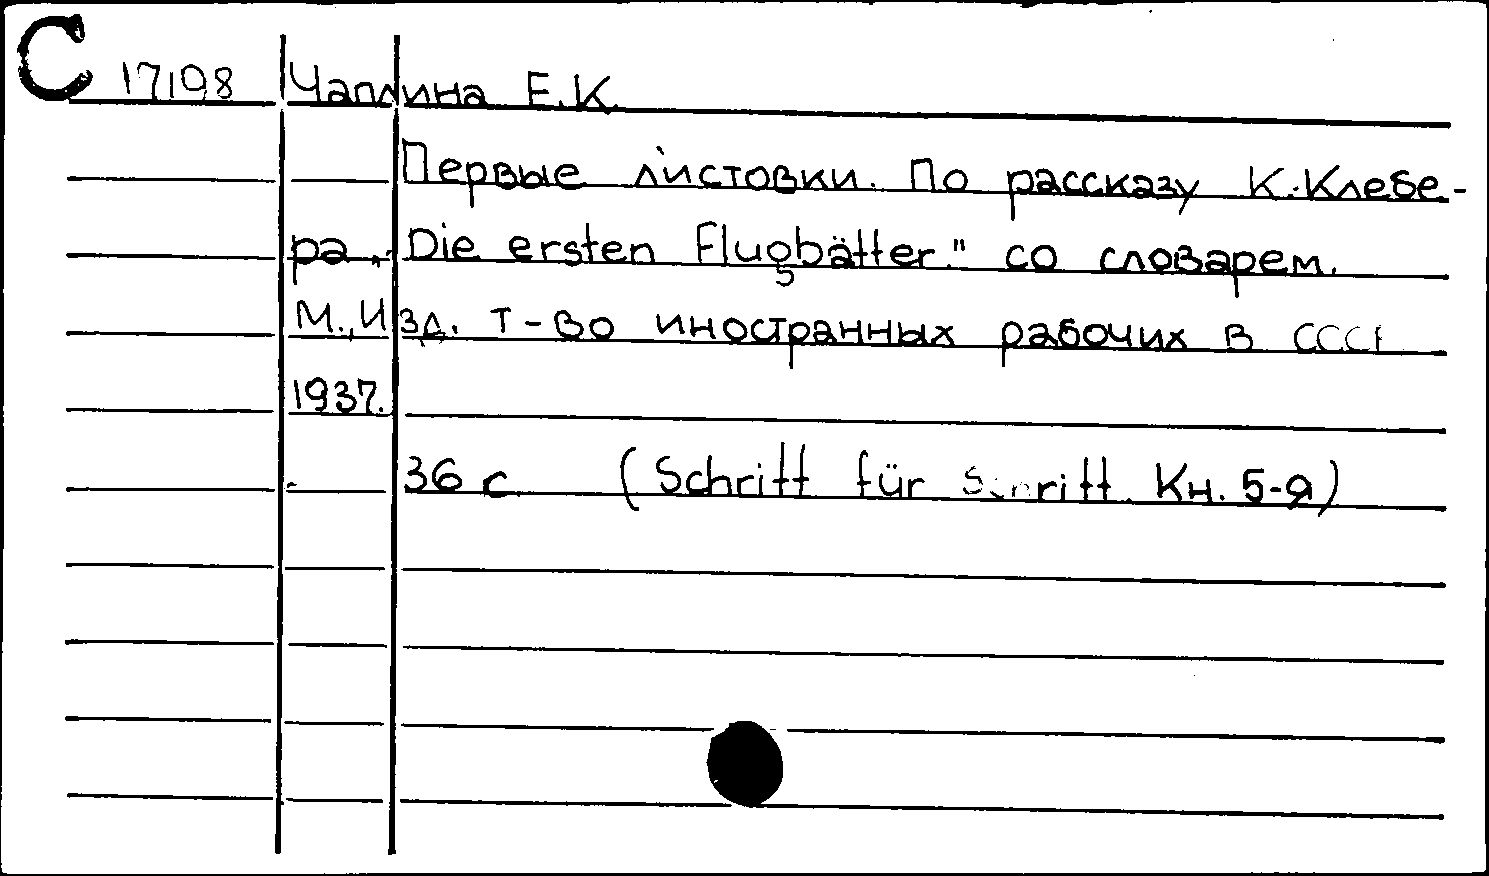 С 17198 Чаплина Е.К.
Первые листовки. По рассказу К. Клебе-
ра „Die ersten Flugbätter." со словарем.
М., Изд. т-во иностранных рабочих в СССР
1937.
36 с. (Schritt für Schritt. Кн. 5-я)